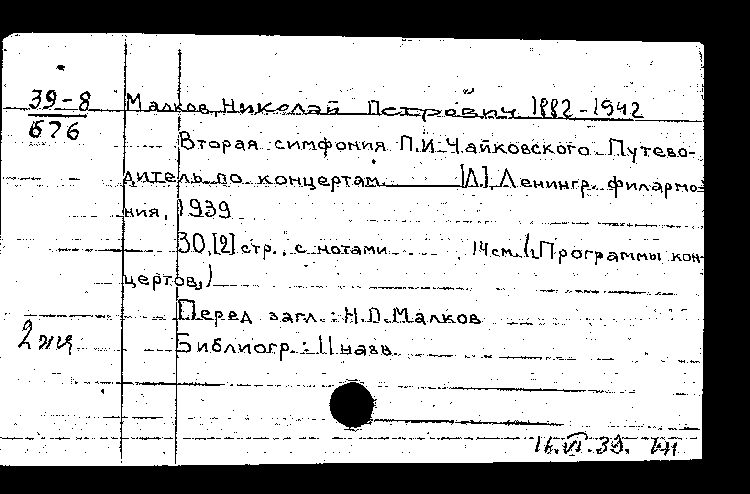 39-8
676
Малков, Николай Петрович 1882-1942
Вторая симфония П.И.Чайковского. Путево-
дитель по концертам. [Л], Ленингр. филармо-
ния, 1939
30,[2] стр., с нотами 14см. (Программы кон-
цертов,)
Перед загл.: Н.П.Малков
2 экз
Библиогр.: 11 назв.
16.VI.39.